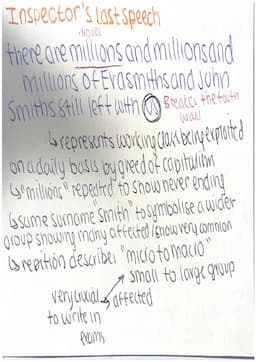 Inspector's last speech
noun
there are millions and millions and
millions of Eva smiths and John
Smiths still left with us
Breaks the fourth
wall
↳ represents working class being exploited
on a daily basis by greed of capitalism
↳ "millions" repeated to show never ending
↳ same surname "Smith" to symbolise a wider
group showing many affected / show very common
↳ repition describes "micro to macro"
small to large group
affected
very crucial
to write in
exams